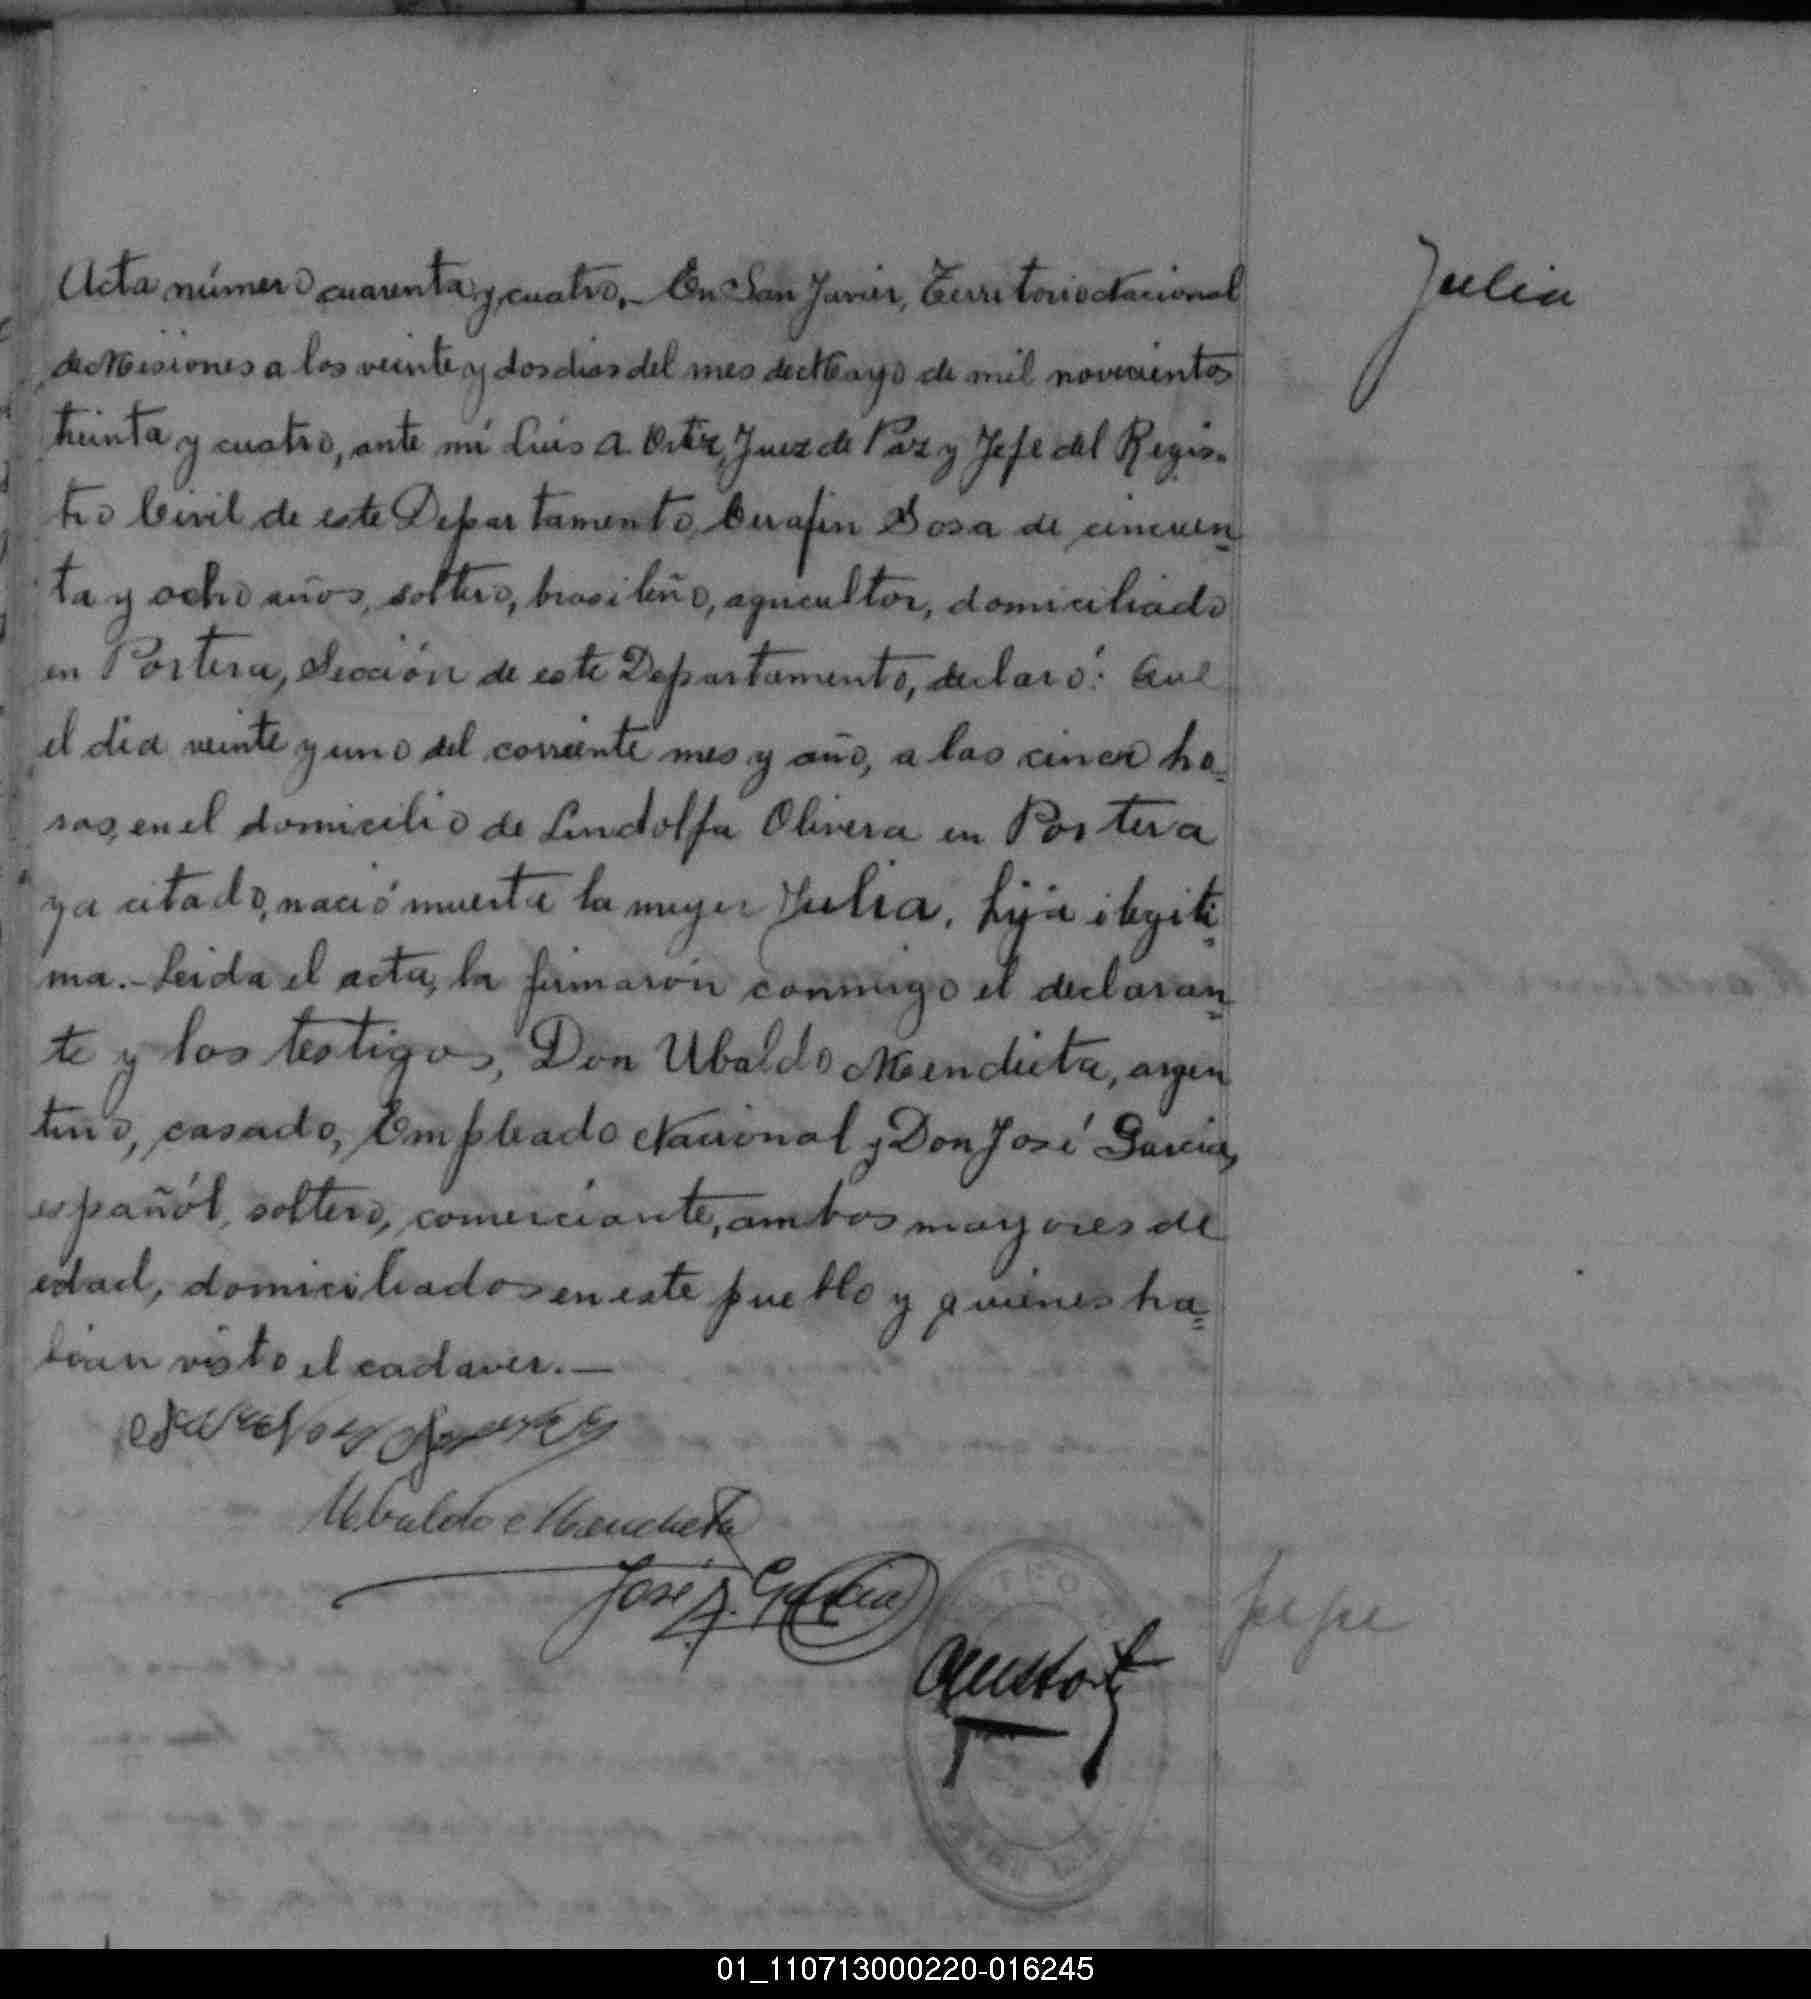 Acta número cuarenta y cuatro.- En San Javier, Territorio Nacional
Julia
de Misiones a los veinte y dos dias del mes de Mayo de mil novecientos
treinta y cuatro, ante mi Luis A. Ortiz, Juez de Paz y Jefe del Regis-
tro Civil de este Departamento, Cerafin Sosa de cincuen-
ta y ocho años, soltero, brasileño, agricultor, domiciliado
en Portera, Sección de este Departamento, declaró: Que
el dia veinte y uno del corriente mes y año, a las cinco ho-
ras, en el domicilio de Lindolfa Olivera en Portera
ya citado, nació muerta la mujer Julia, hija ilegiti-
ma.- Leida el acta, la firmarón conmigo el declaran-
te y los testigos, Don Ubaldo Mendieta, argen
tino, casado, Empleado Nacional y Don José Garcia,
español, soltero, comerciante, ambos mayores de
edad, domiciliados en este pueblo y quienes ha-
bian visto el cadaver.-
Ubaldo Mendieta
José A. Garcia
01_110713000220-016245